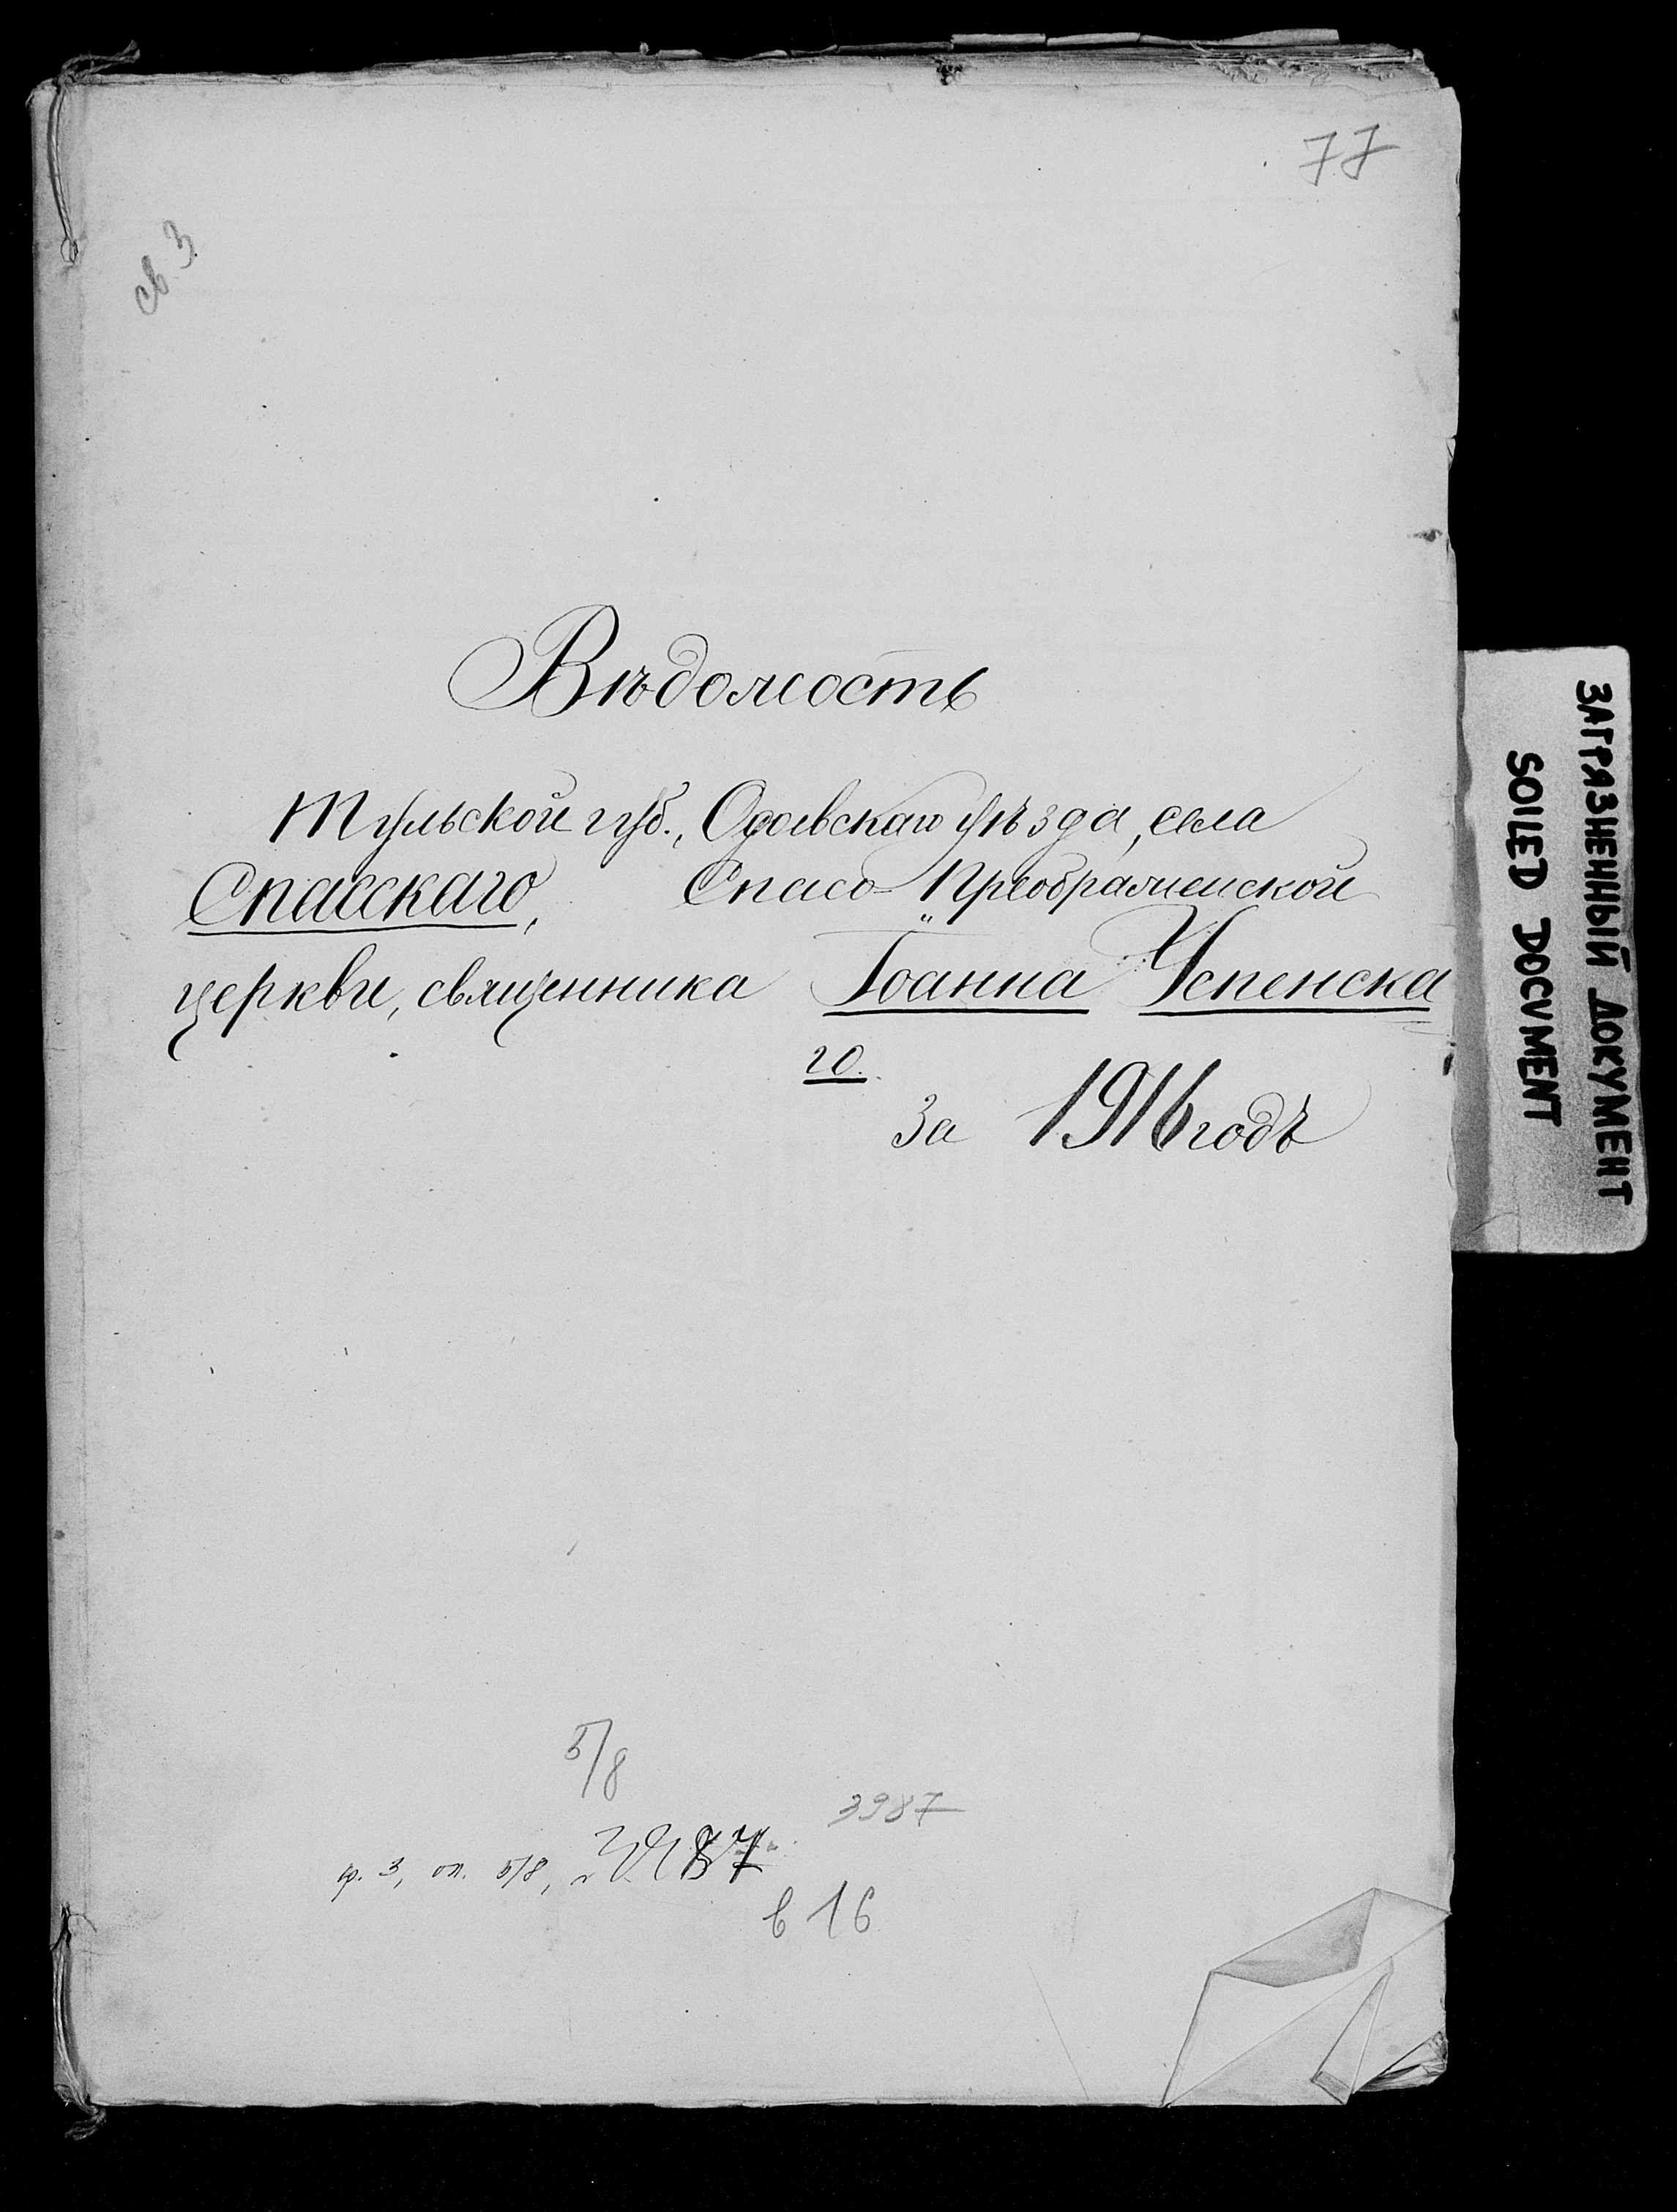 77
св. 3.
Вѣдомость
Тульской губ., Одоевскаго уѣзда, села
Спасскаго, Спасо-Преображенской
церкви, священника Іоанна Успенска
го.
За 1916 годъ
5/8
3987
ф. 3, оп. 5/8,
в 16
ЗАГРЯЗНЕННЫЙ ДОКУМЕНТ
SOILED DOCUMENT